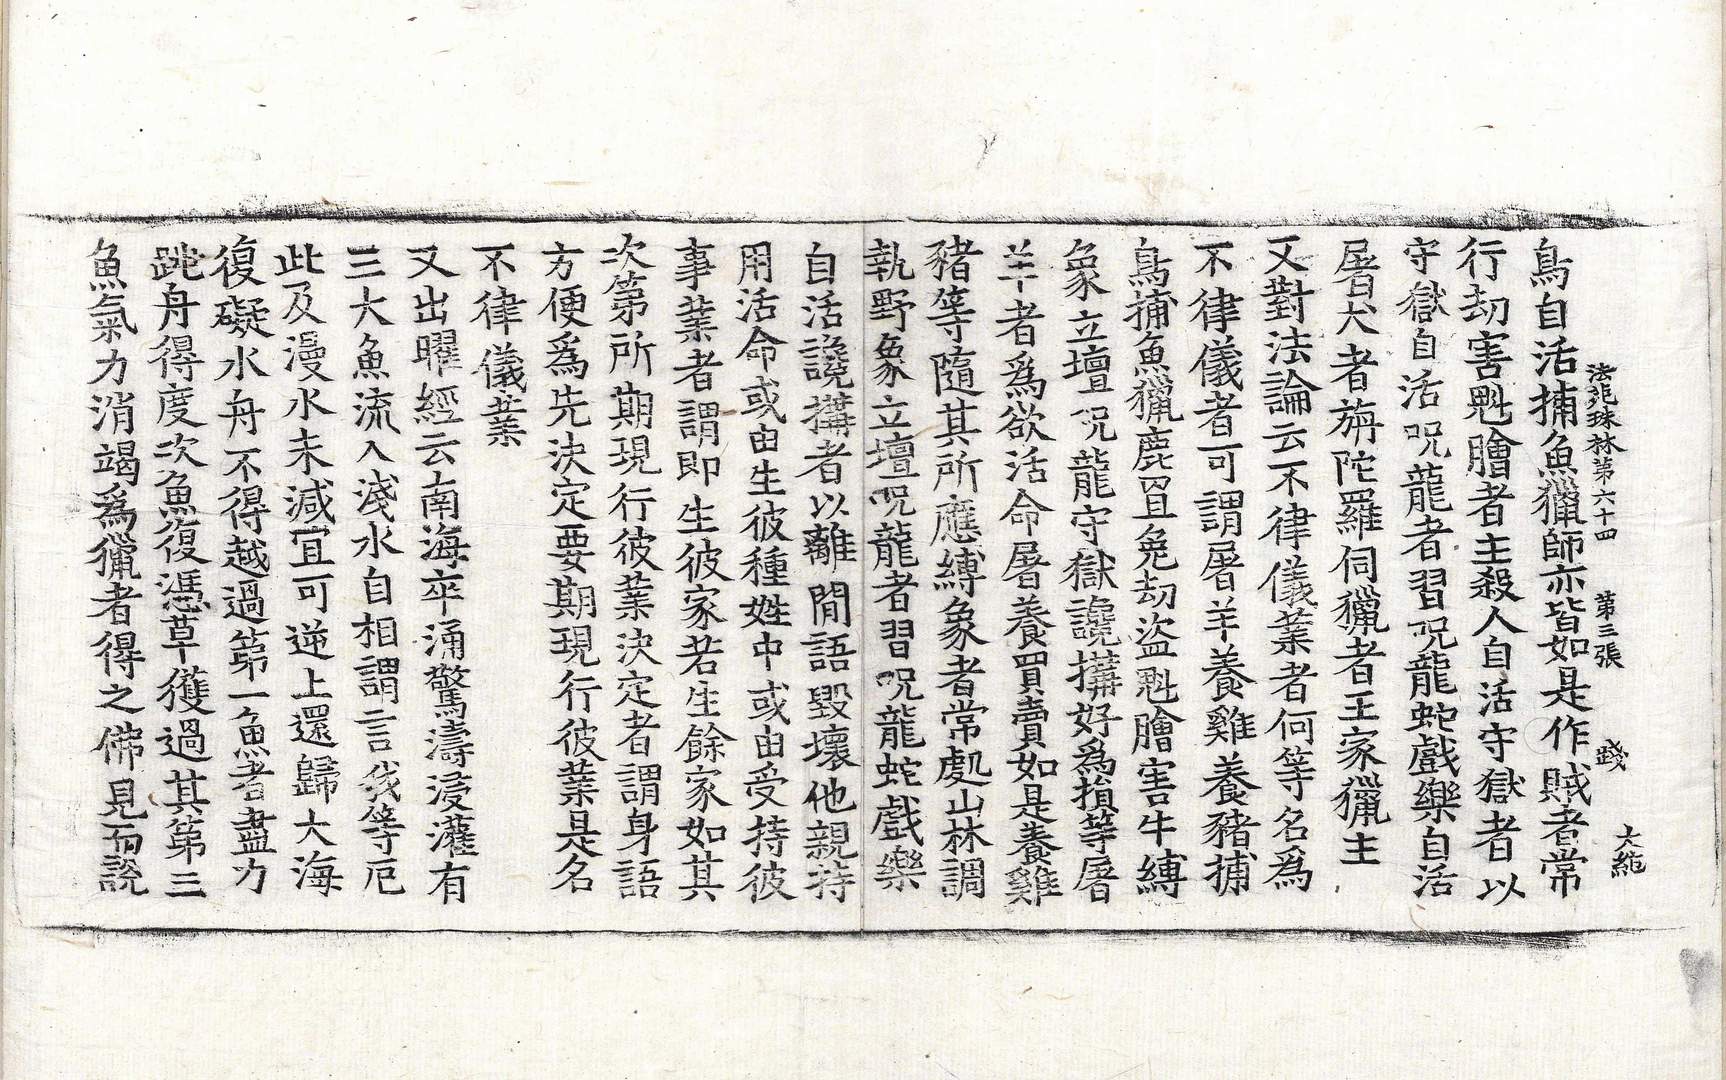 法苑珠林第六十四 第三張 踐 大純
鳥自活捕魚獵師亦皆如是作賊者常
行劫害魁膾者主殺人自活守獄者以
守獄自活呪龍者習呪龍蛇戲樂自活
屠犬者旃陀羅伺獵者王家獵主
又對法論云不律儀業者何等名為
不律儀者可謂屠羊養雞養豬捕
鳥捕魚獵鹿罝兔劫盜魁膾害牛縛
象立壇呪龍守獄讒搆好為損等屠
羊者為欲活命屠養買賣如是養雞
豬等隨其所應縛象者常處山林調
執野象立壇呪龍者習呪龍蛇戲樂
自活讒搆者以離間語毀壞他親持
用活命或由生彼種姓中或由受持彼
事業者謂即生彼家若生餘家如其
次第所期現行彼業決定者謂身語
方便為先決定要期現行彼業是名
不律儀業
又出曜經云南海卒涌驚濤浸灌有
三大魚流入淺水自相謂言我等厄
此及漫水未減宜可逆上還歸大海
復礙水舟不得越過第一魚者盡力
跳舟得度次魚復憑草獲過其第三
魚氣力消竭為獵者得之佛見而說